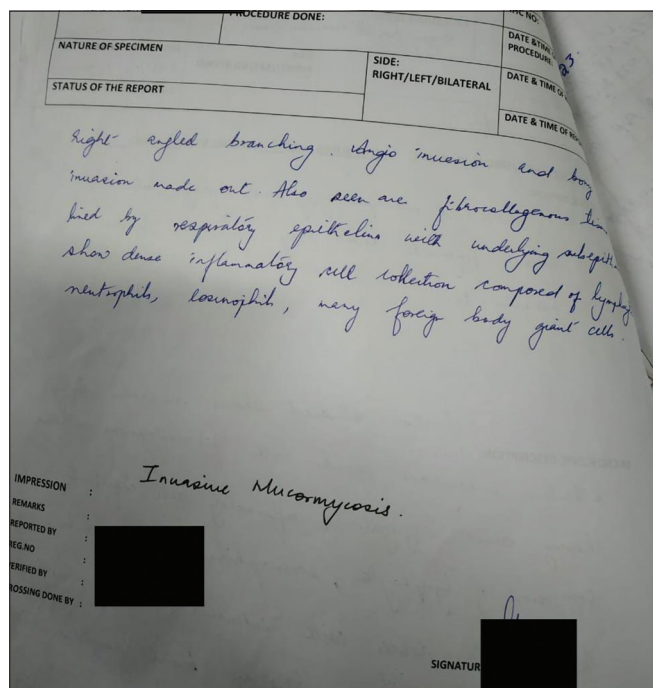 PROCEDURE DONE:
NO:
DATE & TIME
PROCEDURE:
NATURE OF SPECIMEN
SIDE:
RIGHT/LEFT/BILATERAL
DATE & TIME OF
STATUS OF THE REPORT
DATE & TIME OF
Right angled branching. Angio invasion and bony
invasion made out. Also seen are fibrocollagenous
lined by respiratory epithelium with underlying
show dense inflammatory cell collection composed of
neutrophils, eosinophils, many foreign body giant cells.
IMPRESSION : Invasive Mucormycosis.
REMARKS :
REPORTED BY :
REG.NO :
VERIFIED BY :
ROSSING DONE BY :
SIGNATUR